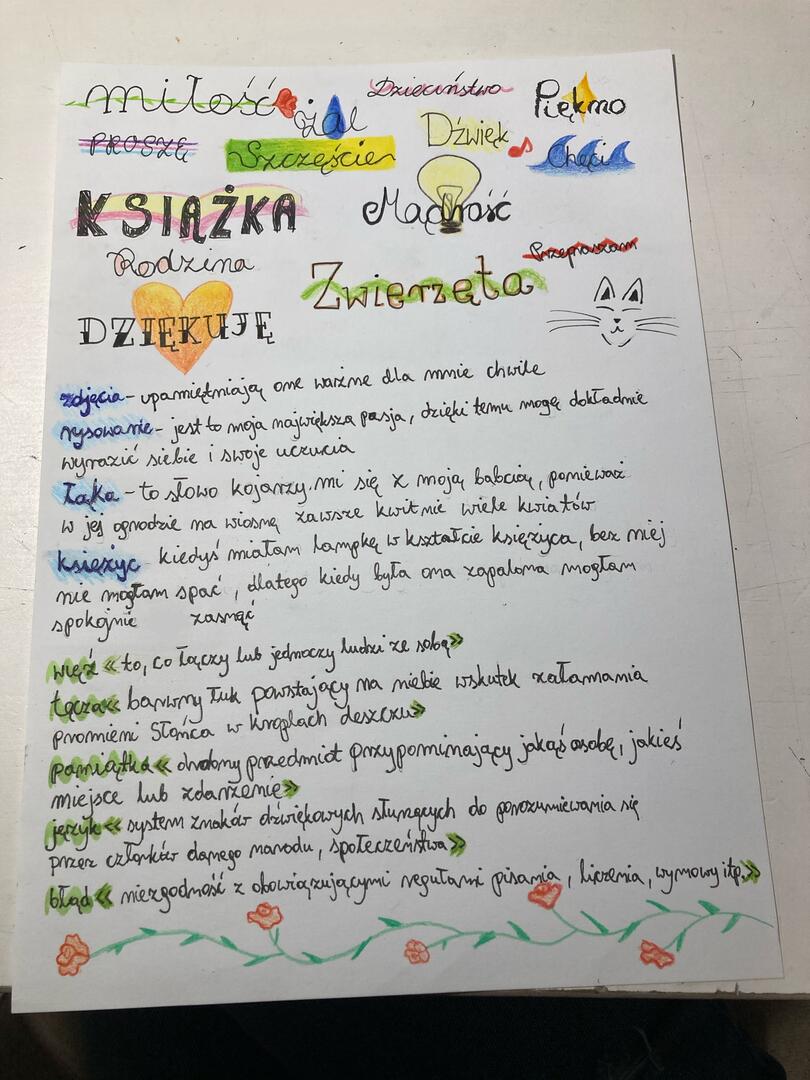 miłość żal Dzieciństwo Piękno
PROSZĘ Szczęście Dźwięk Chęci
KSIĄŻKA Mądrość
Rodzina Zwierzęta Przepraszam
DZIĘKUJĘ
zdjęcia - upamiętniają one ważne dla mnie chwile
rysowanie - jest to moja największa pasja, dzięki temu mogę dokładnie
wyrazić siebie i swoje uczucia
Łąka - to słowo kojarzy mi się z moją babcią, ponieważ
w jej ogrodzie na wiosnę zawsze kwitnie wiele kwiatów
księżyc - kiedyś miałam lampkę w kształcie księżyca, bez niej
nie mogłam spać, dlatego kiedy była ona zapalona mogłam
spokojnie zasnąć
więź « to, co łączy lub jednoczy ludzi ze sobą»
tęcza« barwny łuk powstający na niebie wskutek załamania
promieni Słońca w kroplach deszczu»
pamiątka« drobny przedmiot przypominający jakąś osobę, jakieś
miejsce lub zdarzenie»
język« system znaków dźwiękowych służących do porozumiewania się
przez członków danego narodu, społeczeństwa»
błąd« niezgodność z obowiązującymi regułami pisania, liczenia, wymowy itp.»